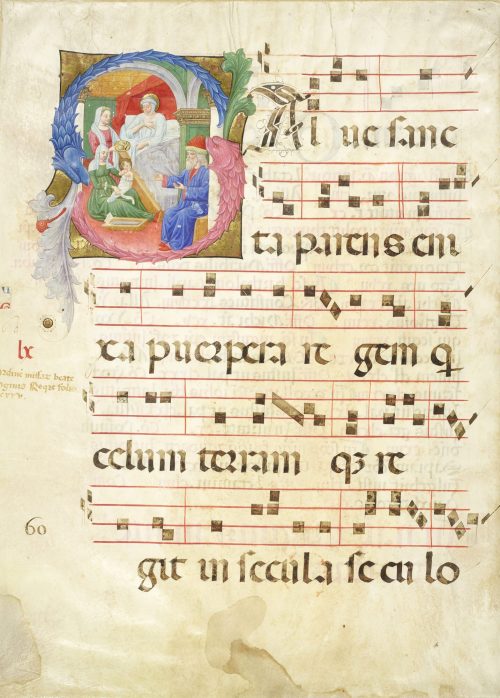 Al ue sanc
ta parens eni
xa puerpera re gem q
lx
celum terram qꝫ re
60
git in secula se cu lo